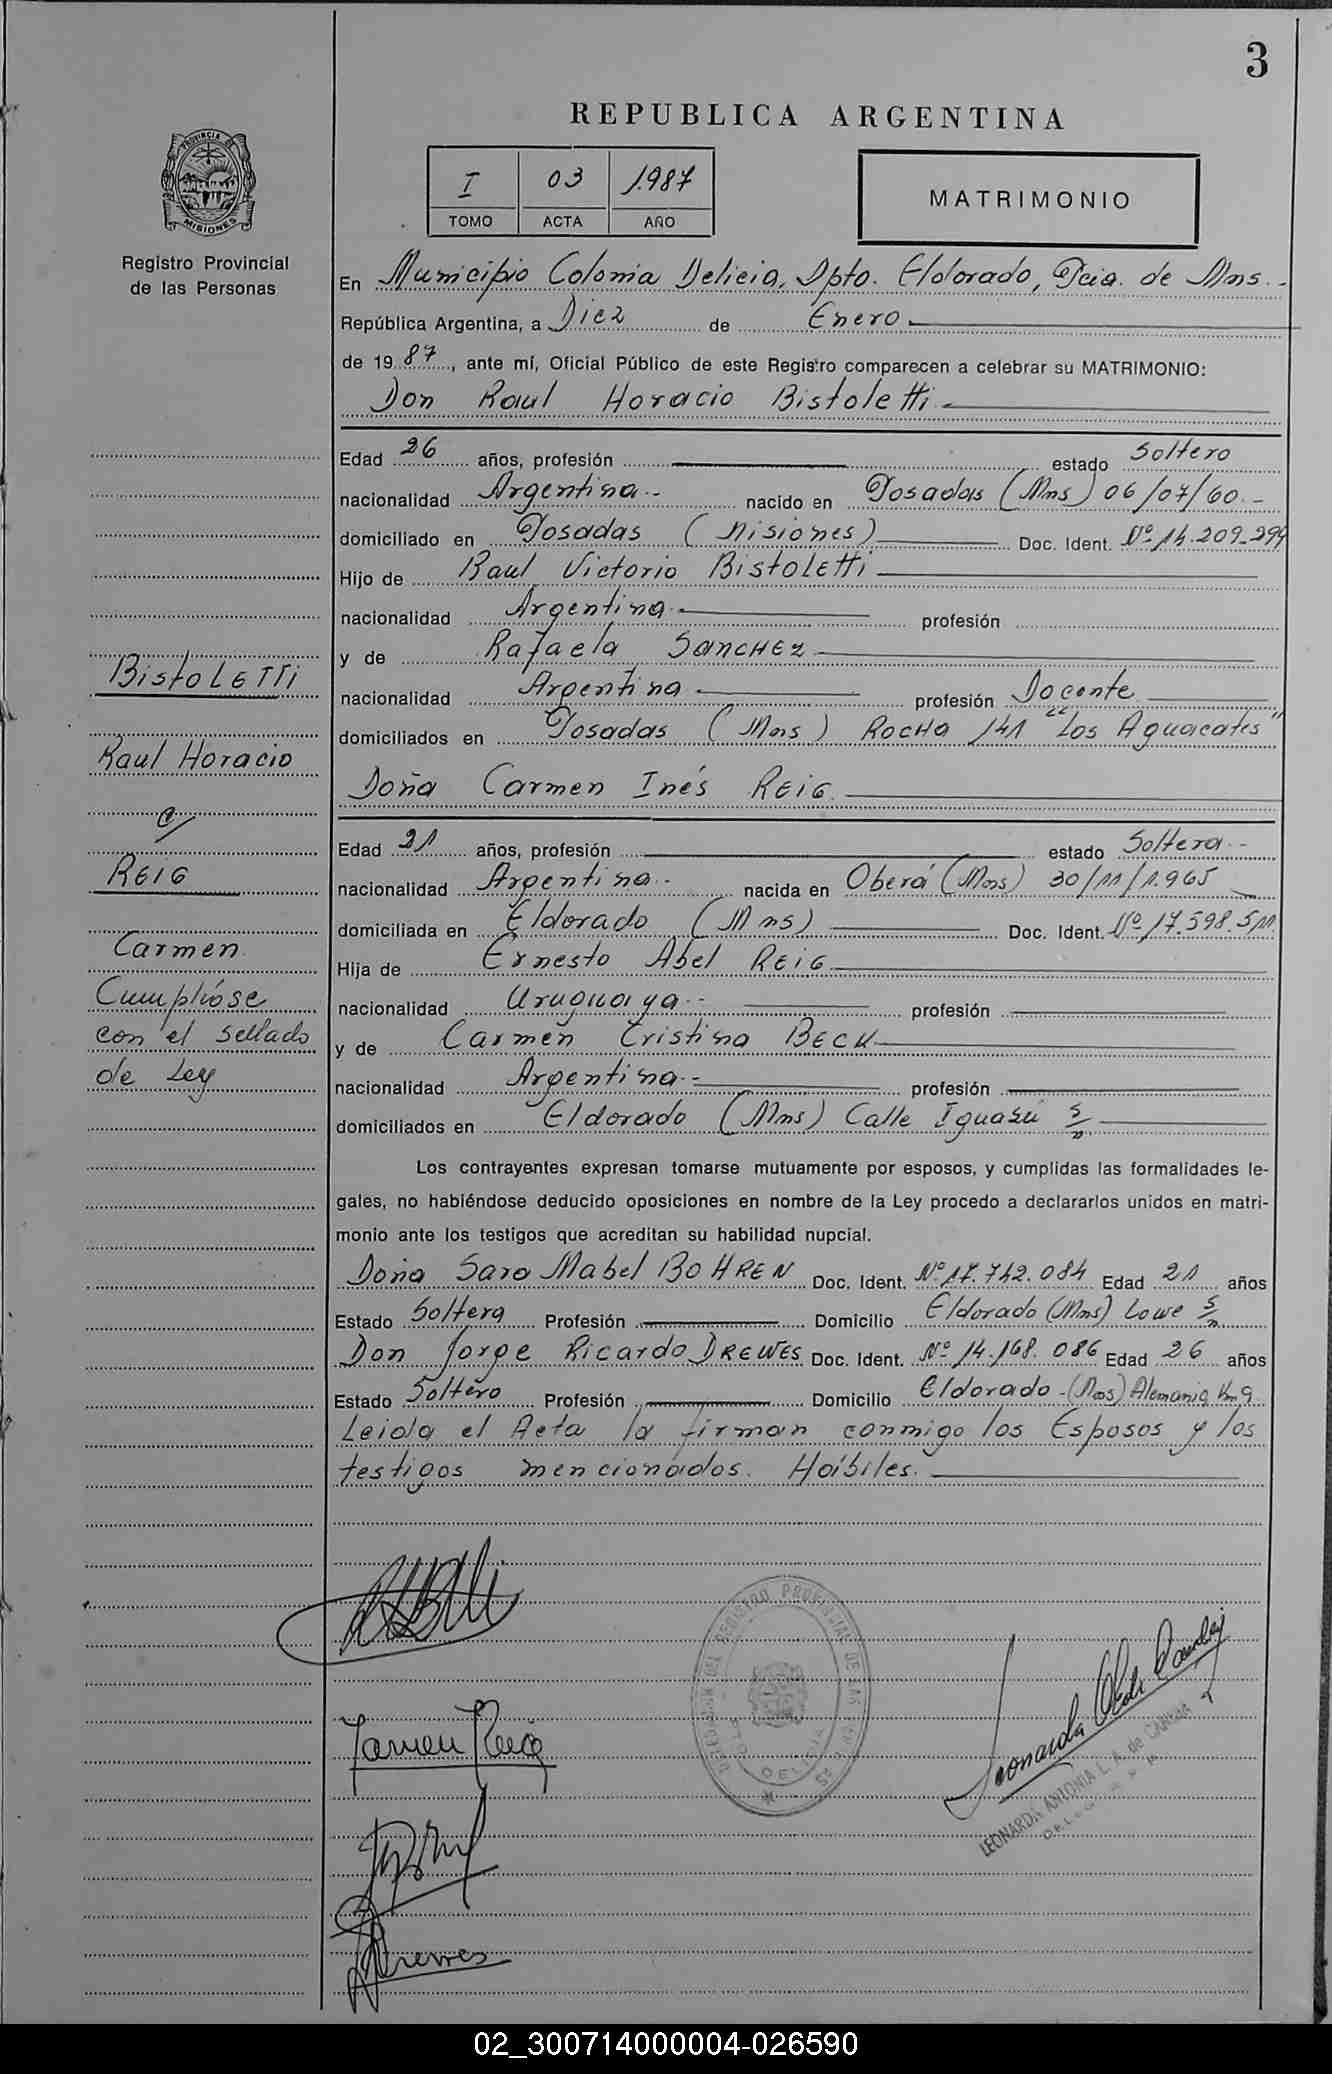 3
REPUBLICA ARGENTINA
PROVINCIA DE
MISIONES
Registro Provincial
de las Personas
I 03 1.987
TOMO ACTA AÑO
MATRIMONIO
En Municipio Colonia Delicia, Dpto. Eldorado, Pcia. de Mns.-
República Argentina, a Diez de Enero
de 1987, ante mí, Oficial Público de este Registro comparecen a celebrar su MATRIMONIO:
Don Raul Horacio Bistoletti
Edad 26 años, profesión estado Soltero
nacionalidad Argentina.- nacido en Posadas (Mns) 06/07/60.-
domiciliado en Posadas (Misiones) Doc. Ident. Nº 14.209.299
Hijo de Raul Victorio Bistoletti
nacionalidad Argentina.- profesión
y de Rafaela SANCHEZ
nacionalidad Argentina profesión Docente
domiciliados en Posadas (Mns) ROCHA 141 "Los Aguacates"
Doña Carmen Inés REIG
Edad 21 años, profesión estado Soltera.-
nacionalidad Argentina.- nacida en Oberá (Mns) 30/11/1.965
domiciliada en Eldorado (Mns) Doc. Ident. Nº 17.598.511
Hija de Ernesto Abel REIG
nacionalidad Uruguaya.- profesión
y de Carmen Cristina BECK
nacionalidad Argentina.- profesión
domiciliados en Eldorado (Mns) Calle Iguazú s/n
BistoLETTi
Raul Horacio
c/
REIG
Carmen
Cumplióse
con el sellado
de Ley
Los contrayentes expresan tomarse mutuamente por esposos, y cumplidas las formalidades le-
gales, no habiéndose deducido oposiciones en nombre de la Ley procedo a declararlos unidos en matri-
monio ante los testigos que acreditan su habilidad nupcial.
Doña Sara Mabel BOHREN Doc. Ident. Nº 17.742.084 Edad 21 años
Estado Soltera Profesión Domicilio Eldorado (Mns) Lowe s/n
Don Jorge Ricardo DREWES Doc. Ident. Nº 14.168.086 Edad 26 años
Estado Soltero Profesión Domicilio Eldorado-(Mns) Alemania Km 9
Leida el Acta la firman conmigo los Esposos y los
testigos mencionados. Hábiles.
Carmen Reig
Drewes
DELEGACION DEL REGISTRO PROVINCIAL DE LAS PERSONAS
DELICIA
LEONARDA ANTONIA L. A. de
02_300714000004-026590